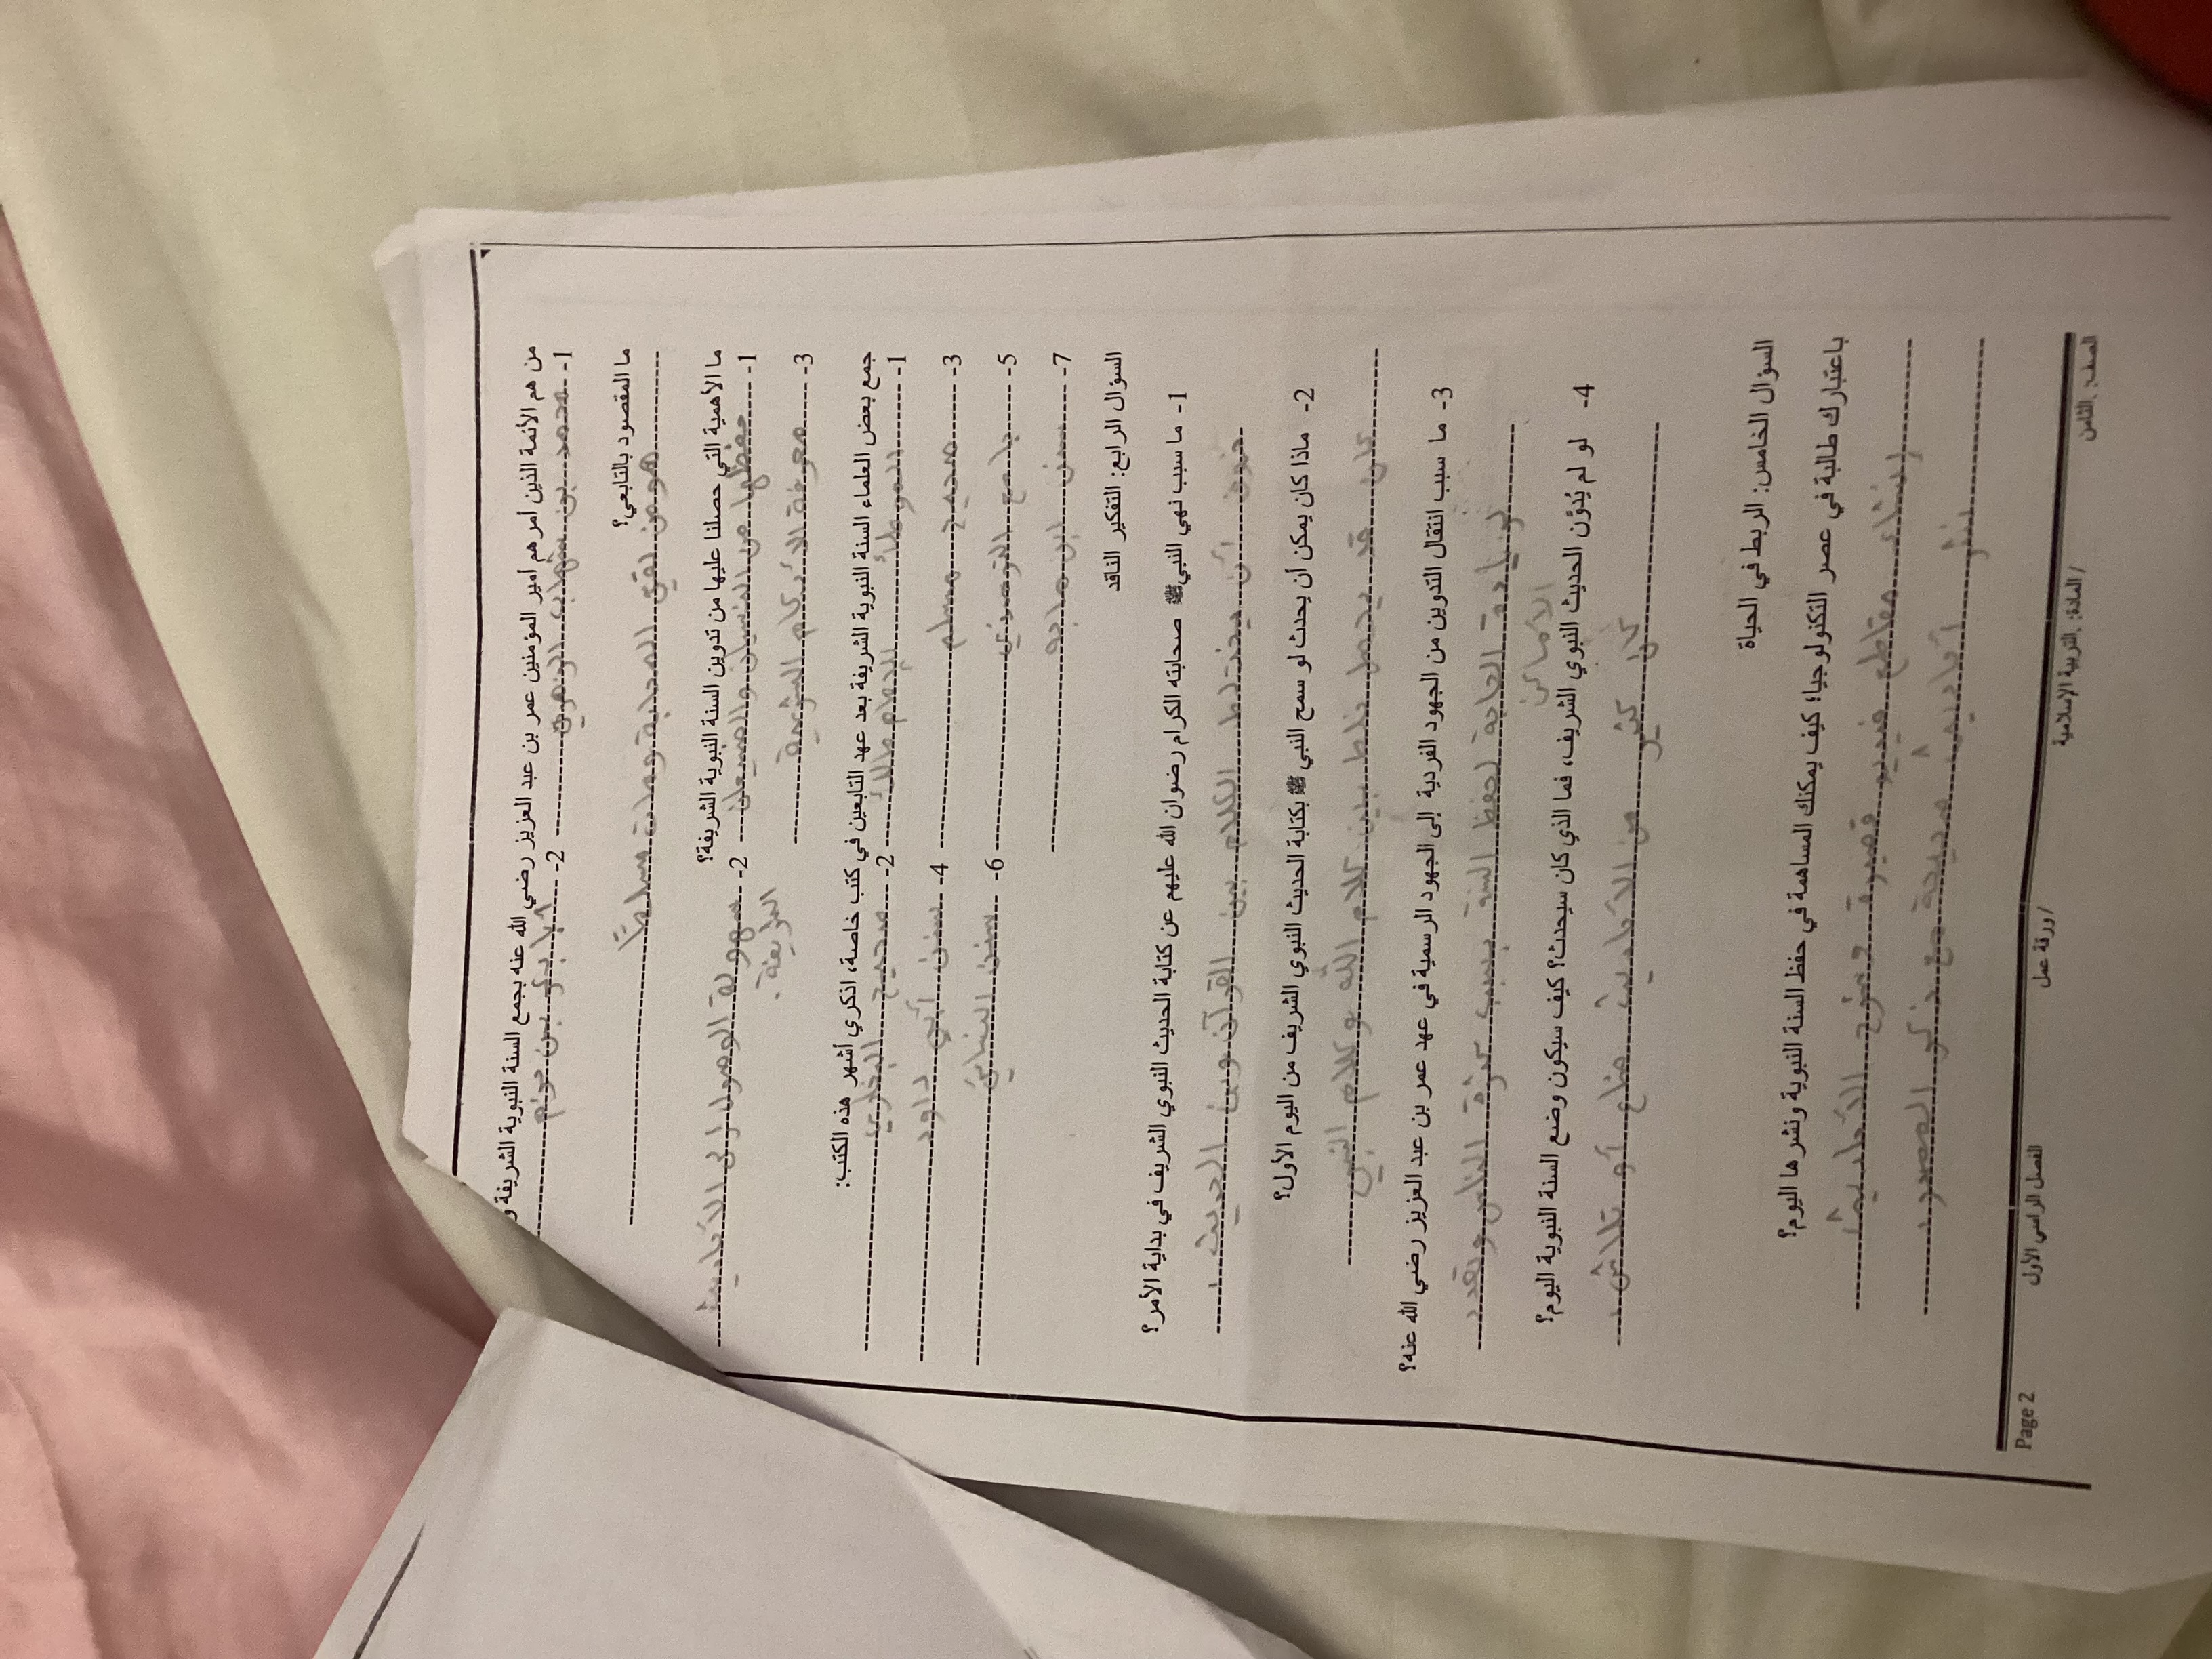 من هم الأئمة الذين أمرهم أمير المؤمنين عمر بن عبد العزيز رضي الله عنه بجمع السنة النبوية الشريفة و
1- محمد بن شهاب الزهري 2- أبا بكر بن حزام
ما المقصود بالتابعي؟
هو من لقي الصحابة ومات مسلمًا
ما الأهمية التي حصلنا عليها من تدوين السنة النبوية الشريفة؟
1- حفظها من النسيان والضياع 2- سهولة الوصول إلى الأحاديث
الشريفة.
3- معرفة الأحكام الشرعية
جمع بعض العلماء السنة النبوية الشريفة بعد عهد التابعين في كتب خاصة، اذكري أشهر هذه الكتب:
1- الموطأ الإمام مالك 2- صحيح البخاري
3- صحيح مسلم 4- سنن أبي داود
5- جامع الترمذي 6- سنن النسائي
7- سنن ابن ماجه
السؤال الرابع: التفكير الناقد
1- ما سبب نهي النبي ﷺ صحابته الكرام رضوان الله عليهم عن كتابة الحديث النبوي الشريف في بداية الأمر؟
أن يختلط الكلام بين القرآن وبين الحديث
2- ماذا كان يمكن أن يحدث لو سمح النبي ﷺ بكتابة الحديث النبوي الشريف من اليوم الأول؟
كان قد يحصل خلط بين كلام الله وكلام النبي
3- ما سبب انتقال التدوين من الجهود الفردية إلى الجهود الرسمية في عهد عمر بن عبد العزيز رضي الله عنه؟
لزيادة الحاجة لحفظ السنة بسبب كثرة الناس وتعدد
الأماكن
4- لو لم يُدوَّن الحديث النبوي الشريف، فما الذي كان سيحدث؟ كيف سيكون وضع السنة النبوية اليوم؟
كان كثير من الأحاديث ضاع أو تلاشى
السؤال الخامس: الربط في الحياة
باعتبارك طالبة في عصر التكنولوجيا؛ كيف يمكنك المساهمة في حفظ السنة النبوية ونشرها اليوم؟
إنشاء مقاطع فيديو قصيرة وشرح الأحاديث
نشر أحاديث صحيحة مع ذكر المصدر
الصف: الثامن /المادة: التربية الإسلامية /ورقة عمل الفصل الدراسي الأول Page 2